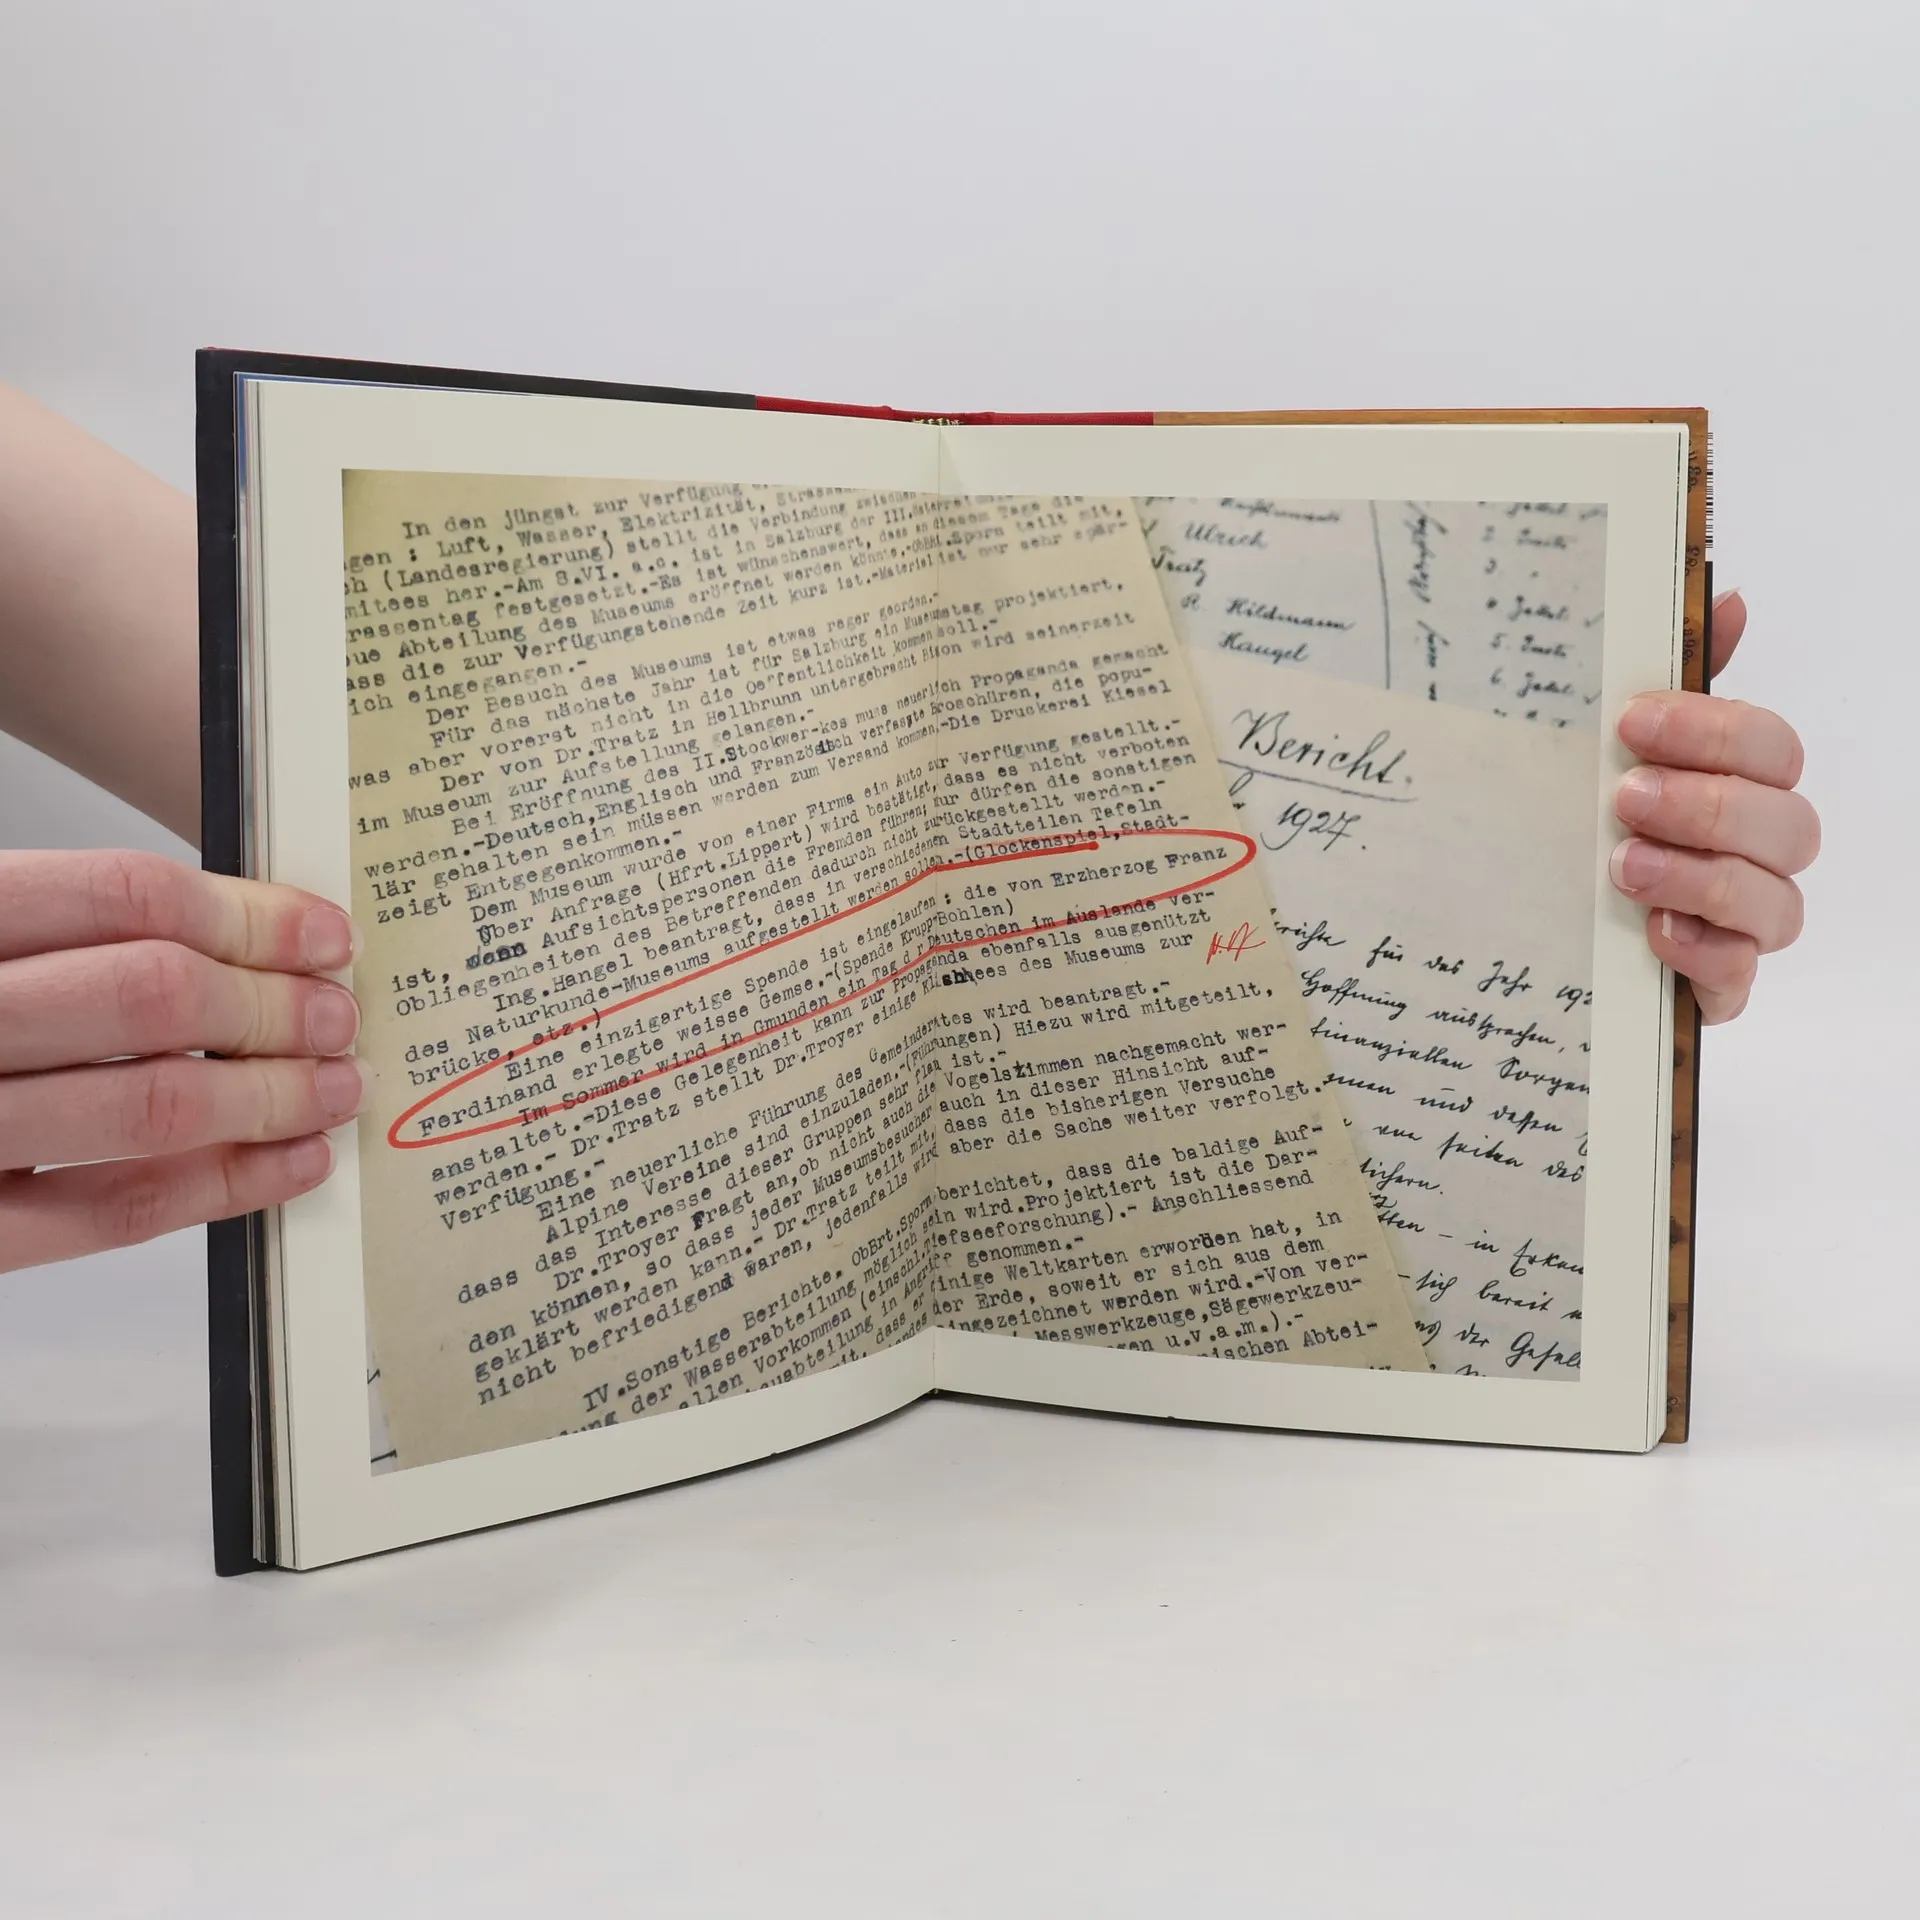 In den jüngst zur Verfügung
gen : Luft, Wasser, Elektrizität, Strassen
ch (Landesregierung) stellt die Verbindung zwischen
mitees her.-Am 8.VI. a.c. ist in Salzburg der III.
rassentag festgesetzt.-Es ist wünschenswert, dass an diesem Tage die
eue Abteilung des Museums eröffnet werden könnte.-ObBrt.Sporn teilt mit,
ass die zur Verfügungstehende Zeit kurz ist.-Material ist nur sehr spär-
ich eingegangen.-
Der Besuch des Museums ist etwas reger georden.-
Für das nächste Jahr ist für Salzburg ein Museumstag projektiert,
was aber vorerst nicht in die Oeffentlichkeit kommen soll.-
Der von Dr.Tratz in Hellbrunn untergebracht Bison wird seinerzeit
im Museum zur Aufstellung gelangen.-
Bei Eröffnung des II.Stockwer-kes muss neuerlich Propaganda gemacht
werden.-Deutsch,Englisch und Französisch verfasste Broschüren, die popu-
lär gehalten sein müssen werden zum Versand kommen.-Die Druckerei Kiesel
zeigt Entgegenkommen.-
Dem Museum wurde von einer Firma ein Auto zur Verfügung gestellt.-
Über Anfrage (Hfrt.Lippert) wird bestätigt, dass es nicht verboten
ist, Aufsichtspersonen die Fremden führen; nur dürfen die sonstigen
Obliegenheiten des Betreffenden dadurch nicht zurückgestellt werden.-
Ing.Hangel beantragt, dass in verschiedenen Stadtteilen Tafeln
des Naturkunde-Museums aufgestellt werden sollen.-(Glockenspiel,Stadt-
brücke, etz.)
Eine einzigartige Spende ist eingelaufen : die von Erzherzog Franz
Ferdinand erlegte weisse Gemse.-(Spende Krupp Bohlen)
Im Sommer wird in Gmunden ein Tag d r Deutschen im Auslande ver-
anstaltet.-Diese Gelegenheit kann zur Propaganda ebenfalls ausgenützt
werden.- Dr.Tratz stellt Dr.Troyer einige Klishees des Museums zur
Verfügung.-
Eine neuerliche Führung des Gemeinderates wird beantragt.-
Alpine Vereine sind einzuladen.-(Führungen) Hiezu wird mitgeteilt,
dass das Interesse dieser Gruppen sehr flau ist.-
Dr.Troyer Fragt an,ob nicht auch die Vogelstimmen nachgemacht wer-
den können, so dass jeder Museumsbesucher auch in dieser Hinsicht auf-
geklärt werden kann.- Dr.Tratz teilt mit, dass die bisherigen Versuche
nicht befriedigend waren, jedenfalls wird aber die Sache weiter verfolgt.
IV.Sonstige Berichte. ObBrt.Sporn berichtet, dass die baldige Auf-
der Wasserabteilung möglich sein wird.Projektiert ist die Dar-
allen Vorkommen (einschl.Tiefseeforschung).- Anschliessend
in Angriff genommen.-
dass er einige Weltkarten erworben hat, in
der Erde, soweit er sich aus dem
eingezeichnet werden wird.-Von ver-
Messwerkzeuge,Sägewerkzeu-
gen u.v.a.m.).-
ischen Abtei-
Ulrich
Tratz
R. Hildmann
Hangel
5.
6.
Bericht.
1927.
für das Jahr 192
Hoffnung aussprachen,
finanziellen Sorgen
und dessen
von seiten des
sichern.
- in Erken
- sich bereit
der Gesell